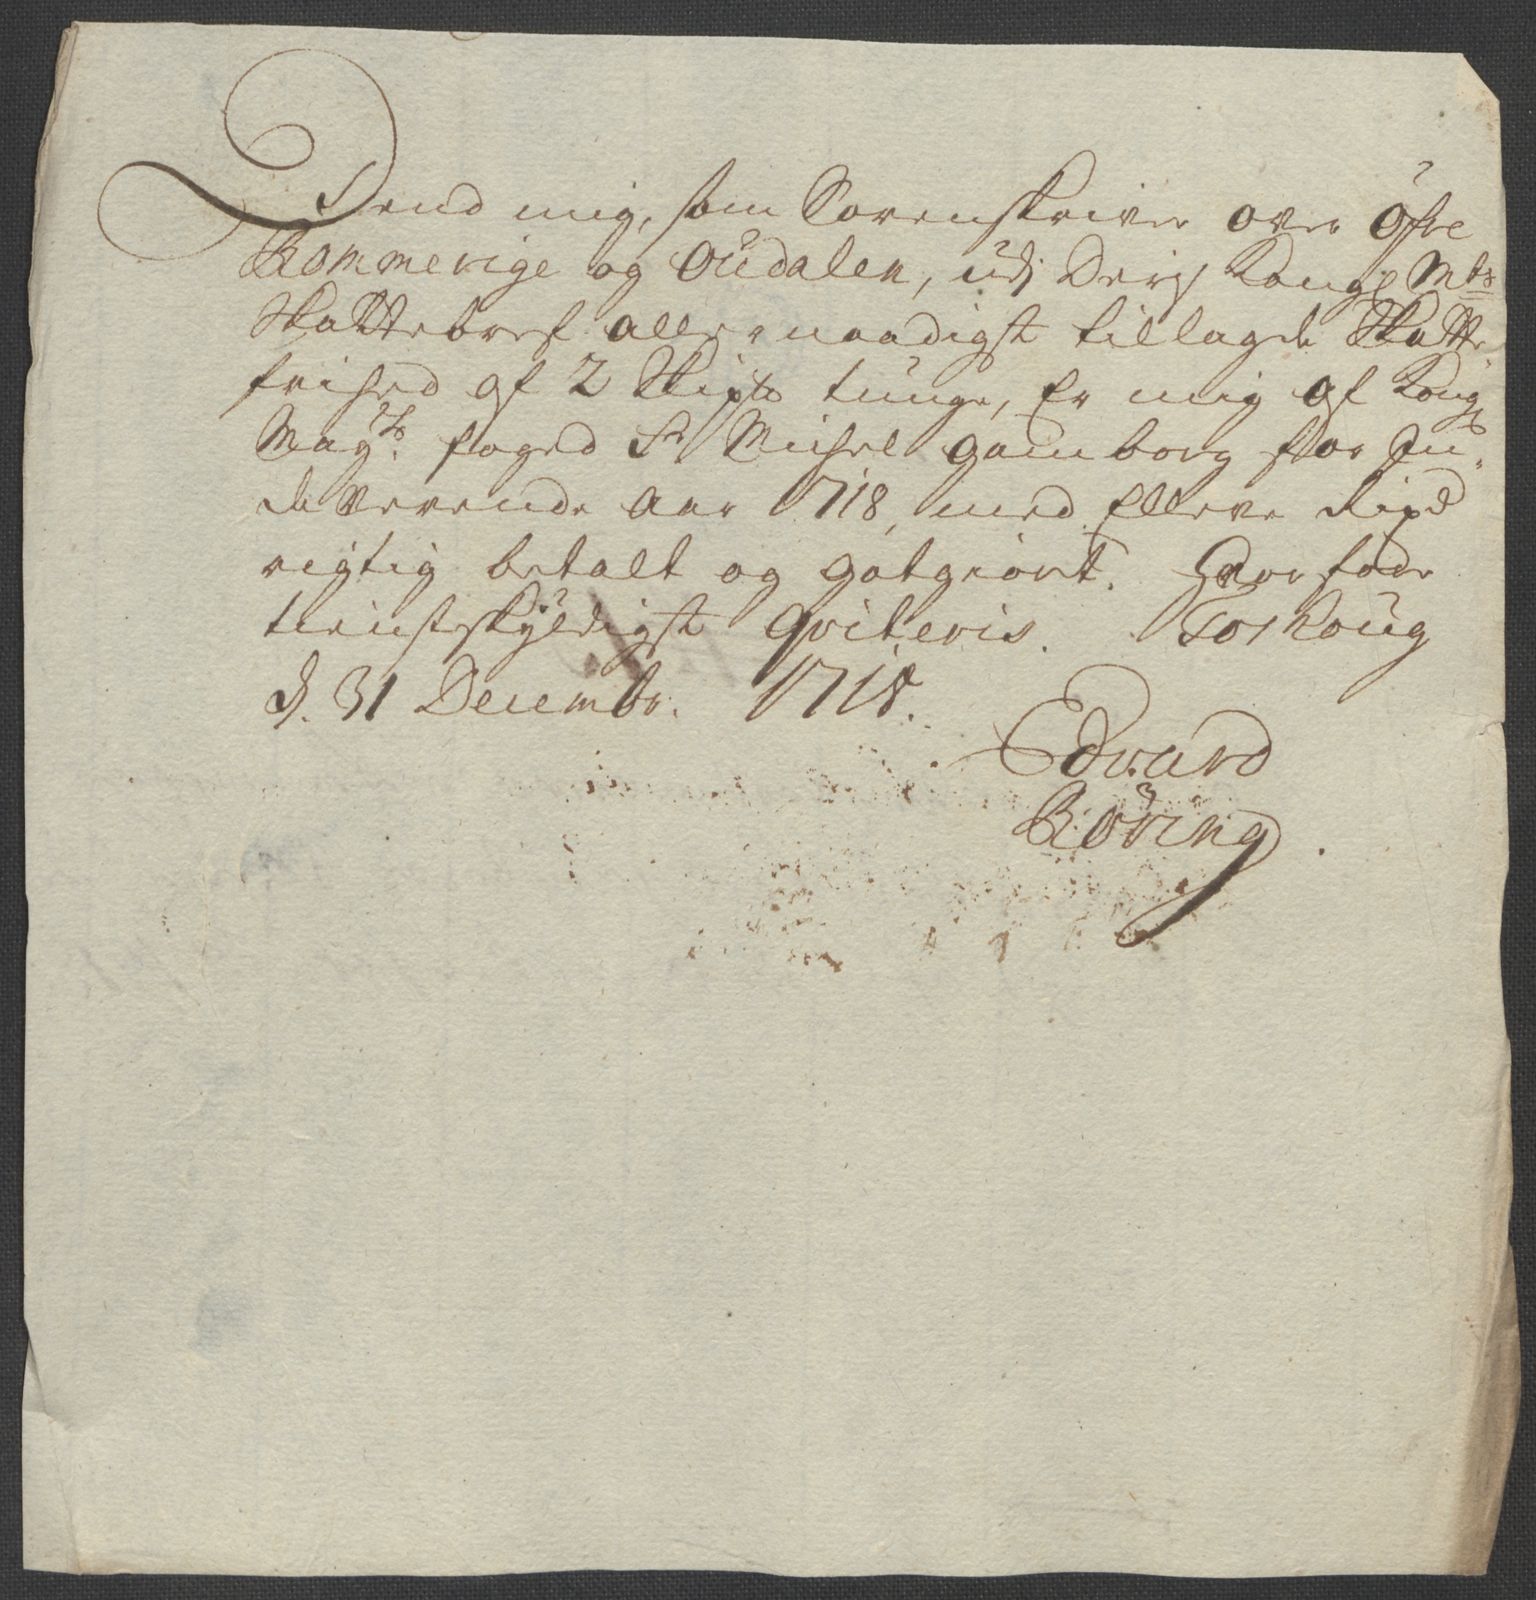 Dend mig, som Sorenskriver over Öfre
Rommerige og Oudalen, udj Deris Kongl Mts
Skattebref aller naadigst tillagde Skatte
frihed af 2 Skipd tunge, Er mig af Kongl
Mayts foged Sr Michel Gamborg for In„
de verende Aar 1718, med Elleve Rixd
rigtig betalt og gotgiort. Hvorfore
tienstskyldigst Qviteris. Torhoug
d. 31 Decembr. 1718.
Edvard
Röring